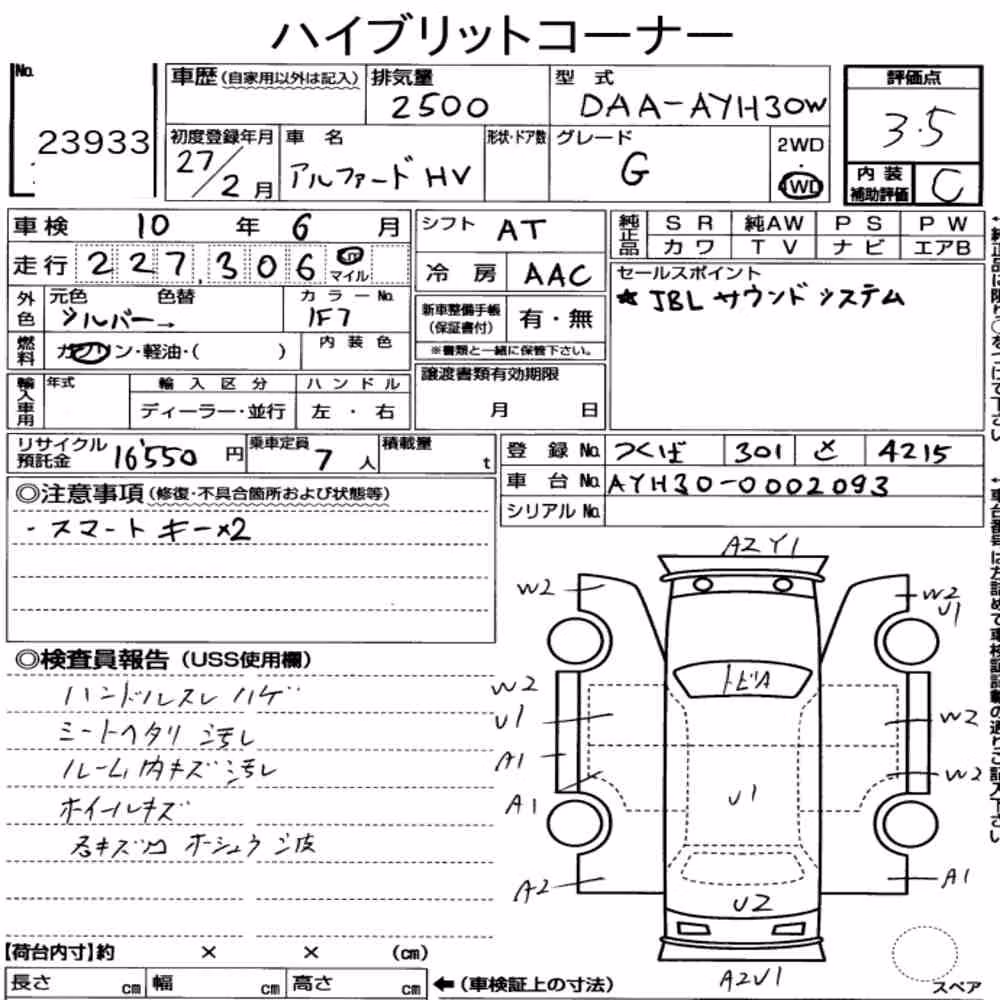 ハイブリットコーナー
No.
23933
車歴(自家用以外は記入)
排気量
2500
型式
DAA-AYH30W
評価点
3.5
初度登録年月
27/2月
車名
アルファードHV
形状・ドア数
グレード
G
2WD
・
4WD
内装
補助評価
C
車検 10年 6月
シフト AT
純正品
SR 純AW PS PW
カワ TV ナビ エアB
走行 227,306 km マイル
冷房 AAC
セールスポイント
★JBLサウンドシステム
外色
元色 色替
シルバー→
カラーNo.
1F7
新車整備手帳
(保証書付)
有・無
※書類と一緒に保管下さい。
燃料
ガソリン・軽油・( )
内装色
輸入車用
年式
輸入区分
ディーラー・並行
ハンドル
左・右
譲渡書類有効期限
月 日
リサイクル預託金
16'550円
乗車定員
7人
積載量
t
登録No. つくば 301 さ 4215
車台No. AYH30-0002093
シリアルNo.
◎注意事項(修復・不具合箇所および状態等)
・スマートキー×2
◎検査員報告(USS使用欄)
ハンドルスレハゲ
シートヘタリ 汚れ
ルーム内キズ汚れ
ホイールキズ
AZY1
W2
W2
U1
トビA
W2
U1
W2
A1
W2
A1
U1
A2
A1
U2
A2U1
スペア
【荷台内寸】約 × × (cm)
長さ cm 幅 cm 高さ cm
←(車検証上の寸法)